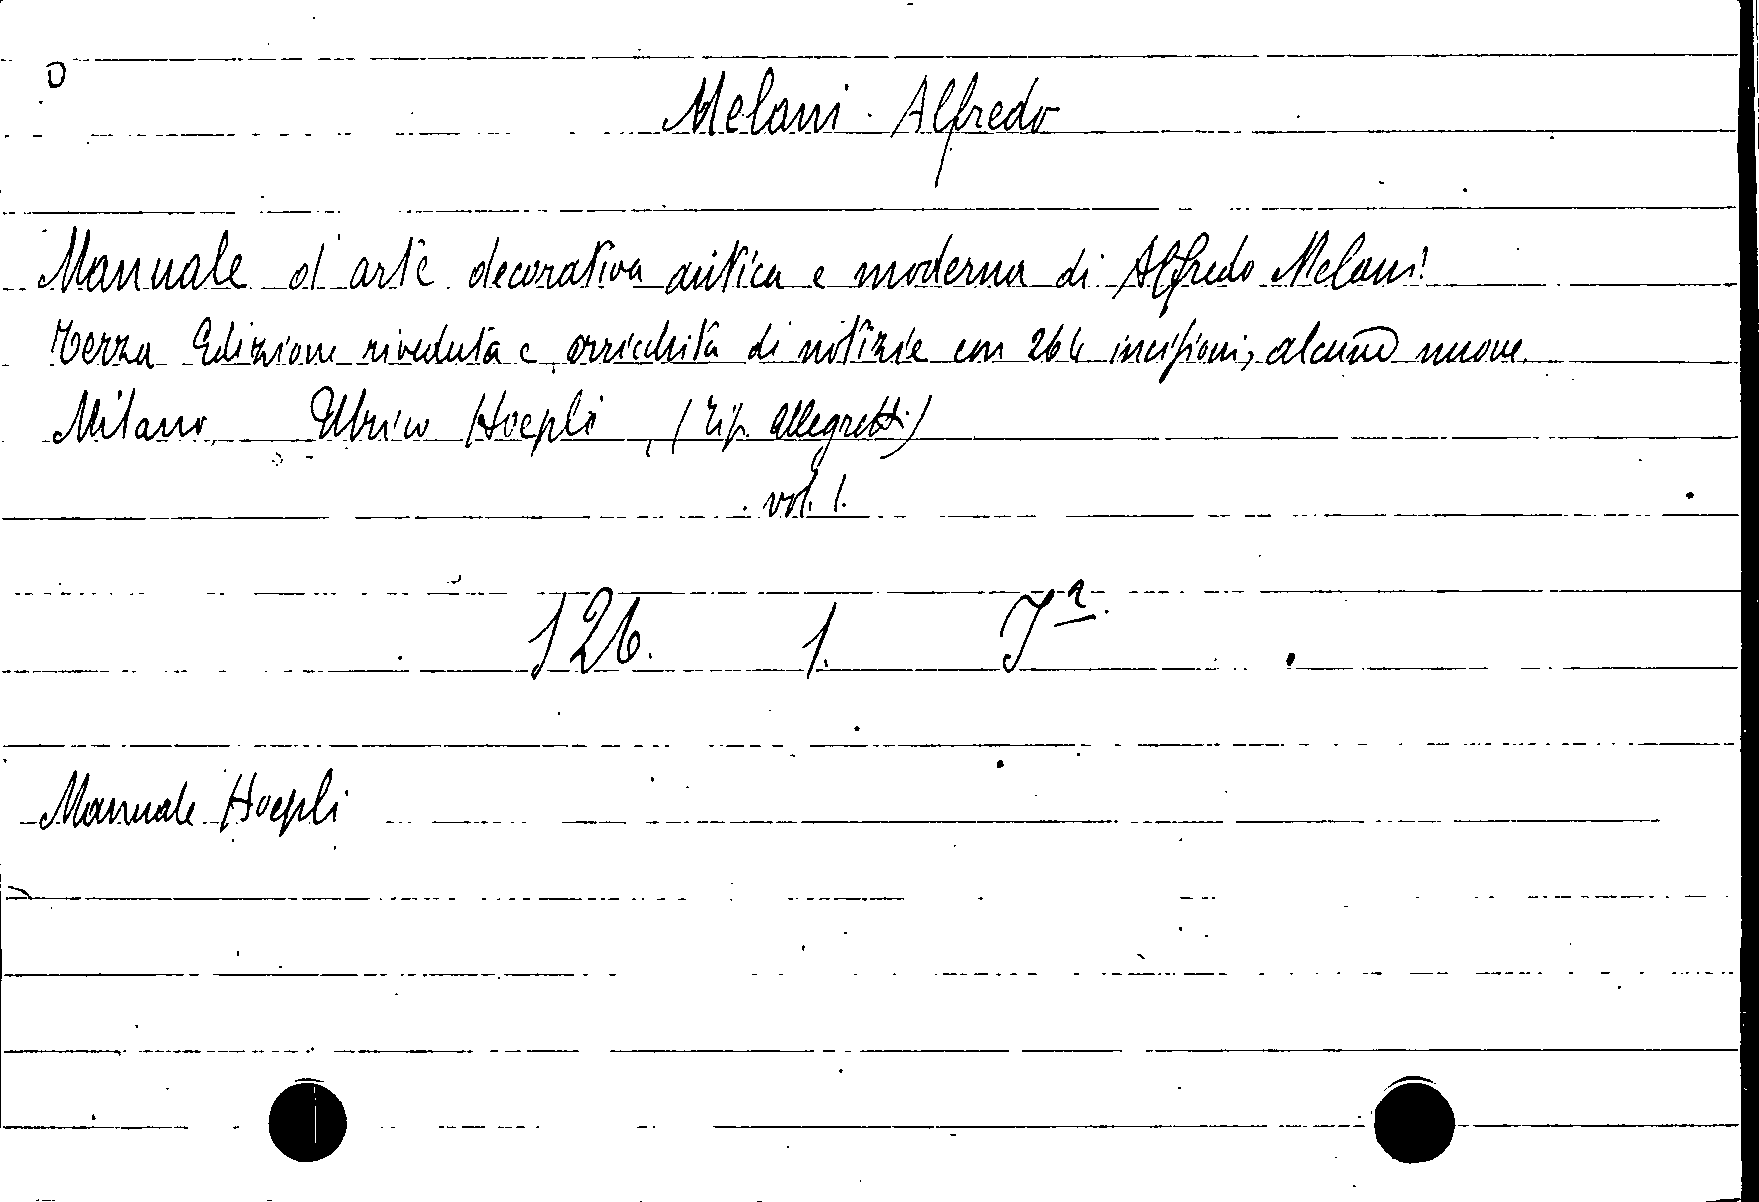 Melani Alfredo
Manuale d'arte decorativa antica e moderna di Alfredo Melani.
Terza Edizione riveduta e arricchita di notizie con 264 incisioni, alcune nuove.
Milano, Ulrico Hoepli, (Tip. Allegretti)
vol. 1.
126. 1.
Manuale Hoepli